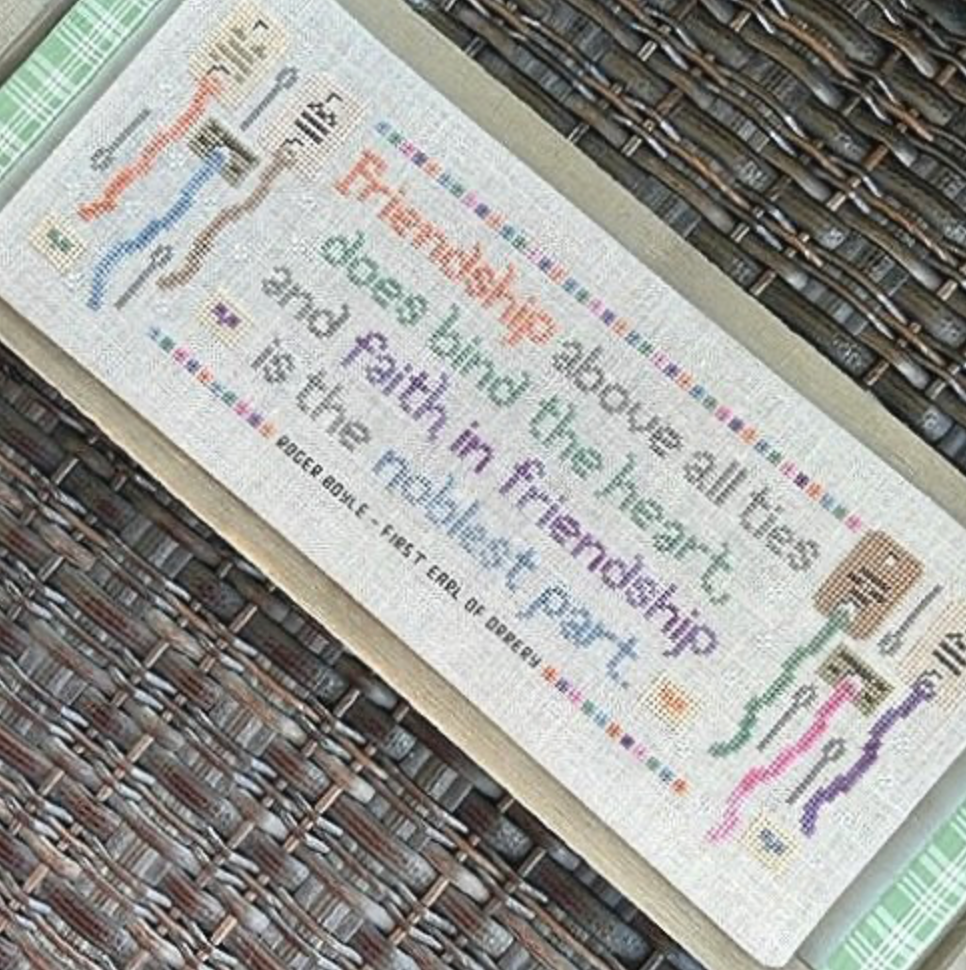 Friendship above all ties
does bind the heart,
and faith in friendship
is the noblest part.
ROGER BOYLE - FIRST EARL OF ORRERY